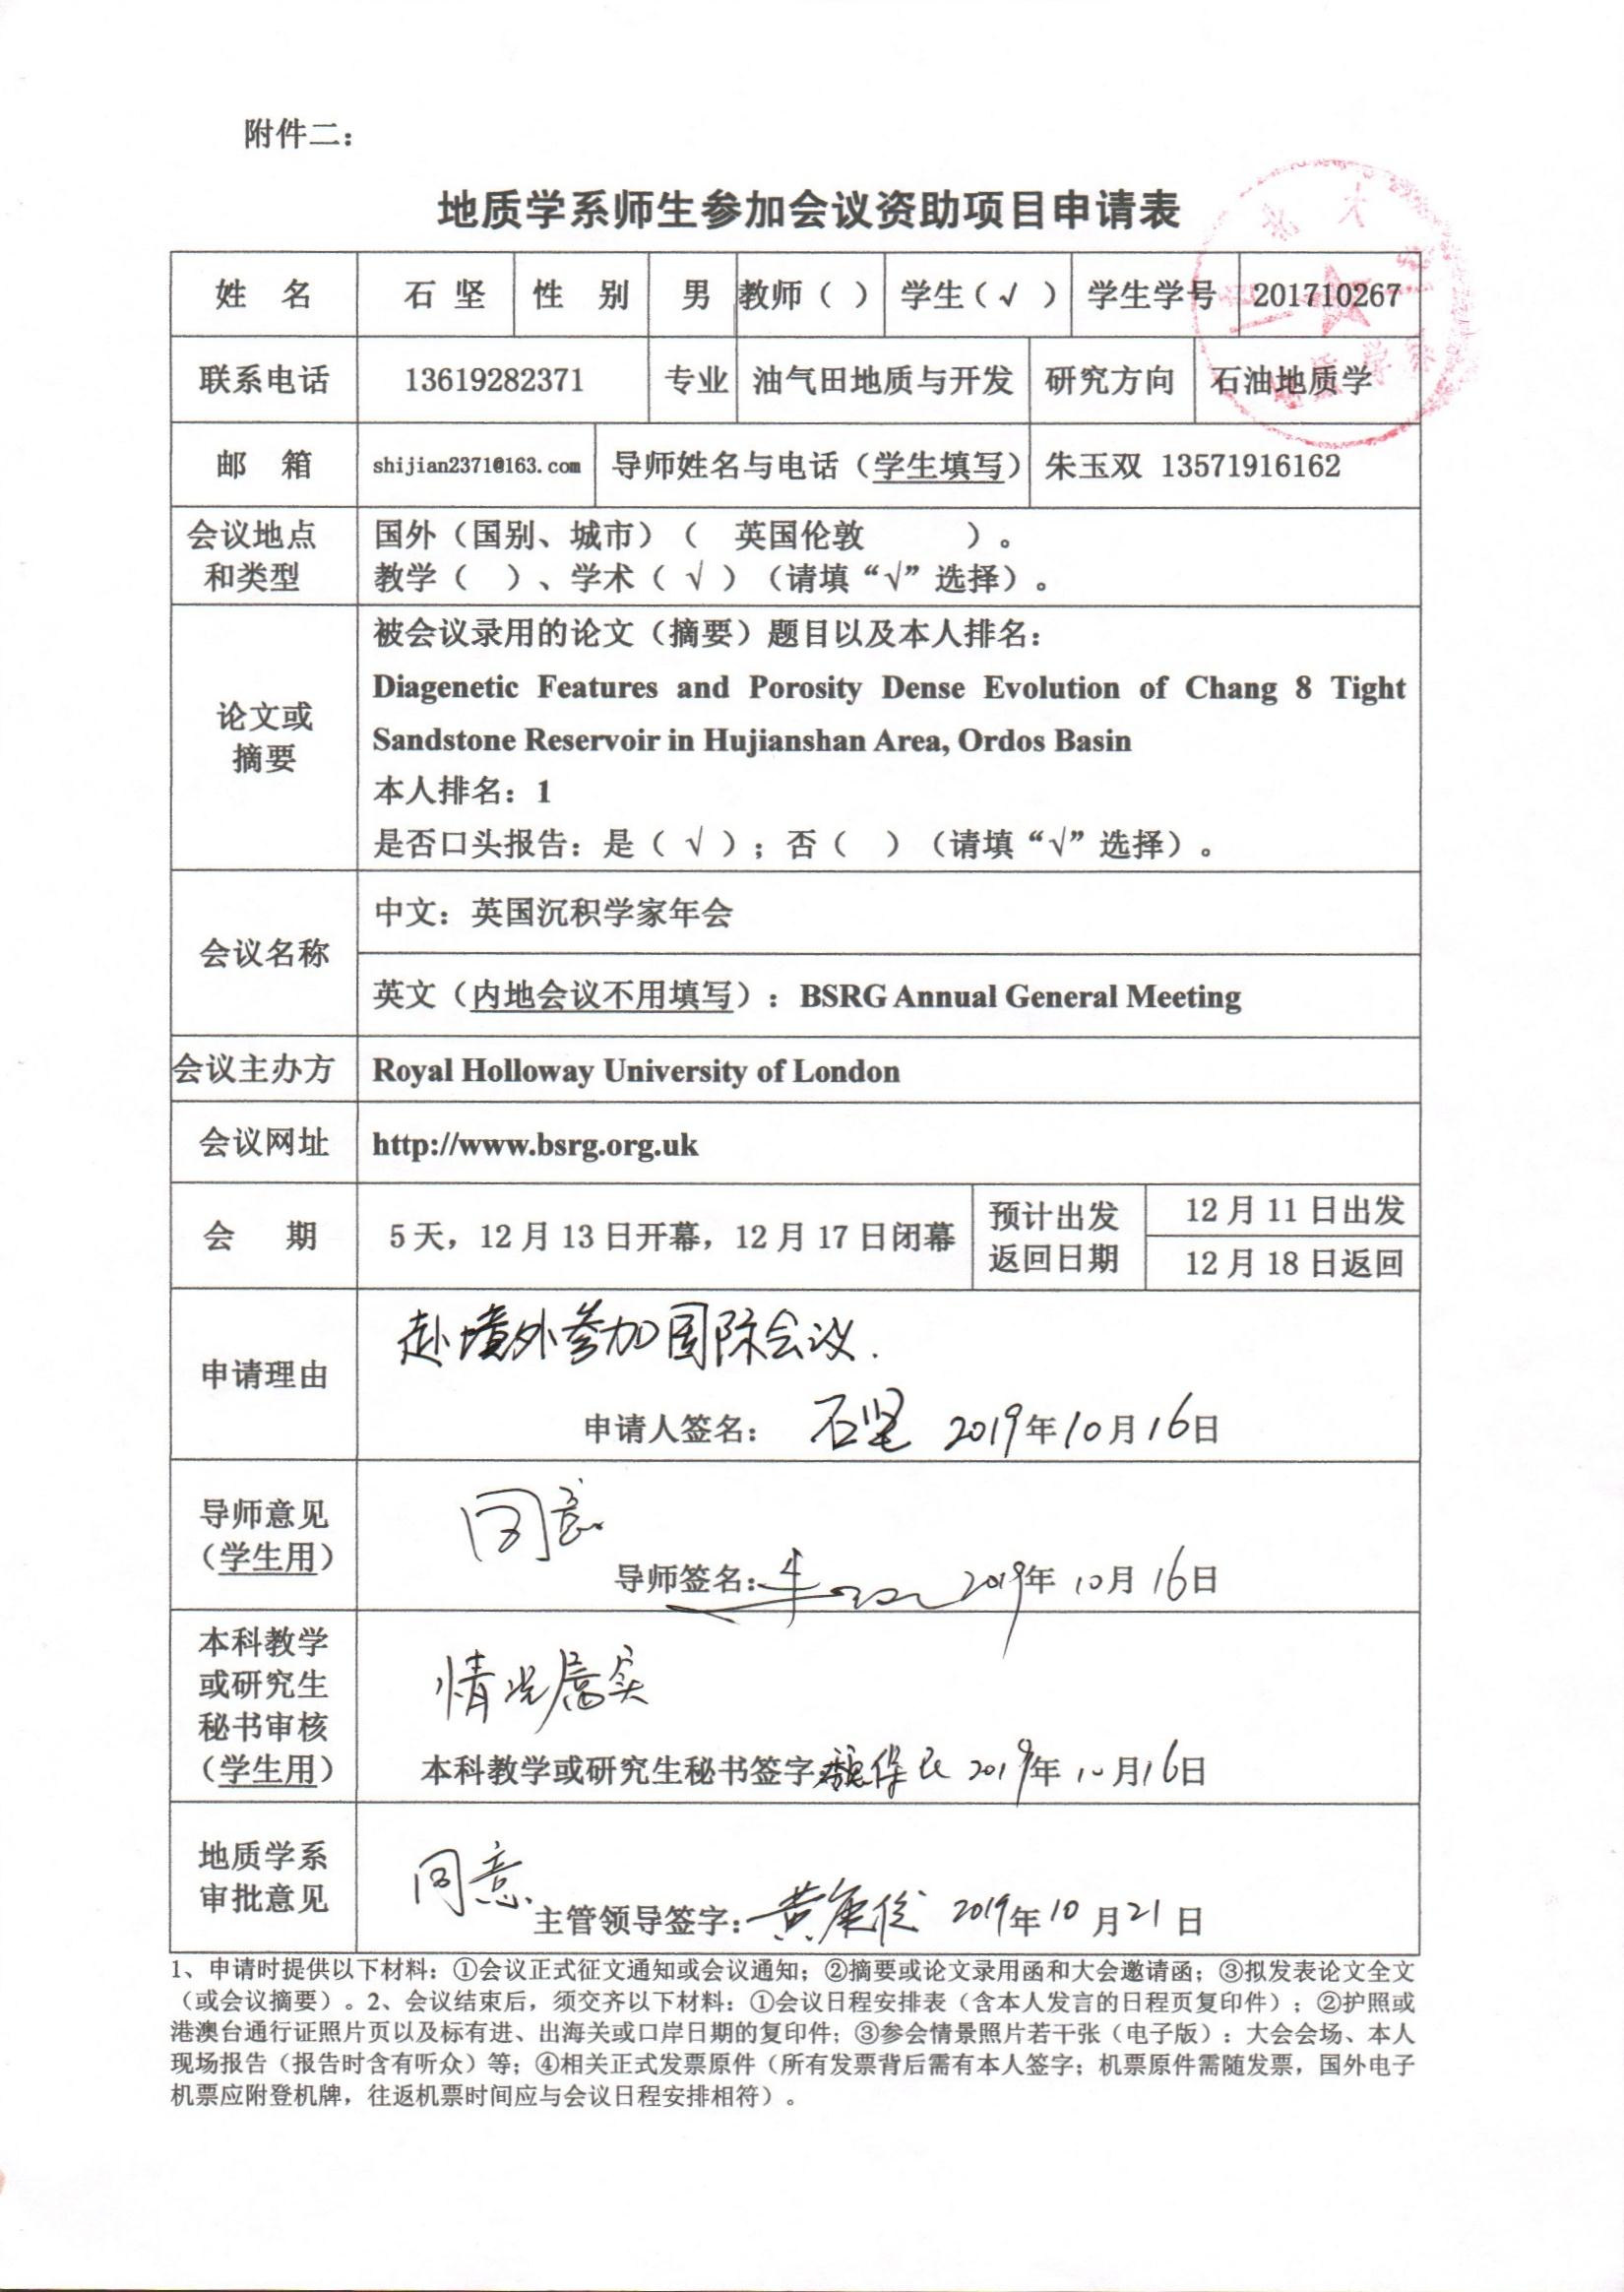 附件二：
地质学系师生参加会议资助项目申请表
姓 名 石 坚 性 别 男 教师（ ） 学生（√ ） 学生学号 201710267
联系电话 13619282371 专业 油气田地质与开发 研究方向 石油地质学
邮 箱 shijian2371@163.com 导师姓名与电话（学生填写） 朱玉双 13571916162
会议地点
和类型
国外（国别、城市）（ 英国伦敦 ）。
教学（ ）、学术（ √ ）（请填“√”选择）。
论文或
摘要
被会议录用的论文（摘要）题目以及本人排名：
Diagenetic Features and Porosity Dense Evolution of Chang 8 Tight
Sandstone Reservoir in Hujianshan Area, Ordos Basin
本人排名：1
是否口头报告：是（ √ ）；否（ ）（请填“√”选择）。
会议名称
中文：英国沉积学家年会
英文（内地会议不用填写）：BSRG Annual General Meeting
会议主办方 Royal Holloway University of London
会议网址 http://www.bsrg.org.uk
会 期 5天，12月13日开幕，12月17日闭幕
预计出发
返回日期
12月11日出发
12月18日返回
申请理由
赴境外参加国际会议.
申请人签名： 石坚 2019年10月16日
导师意见
（学生用）
同意
导师签名： 2019年10月16日
本科教学
或研究生
秘书审核
（学生用）
情况属实
本科教学或研究生秘书签字 2019年10月16日
地质学系
审批意见
同意.
主管领导签字： 2019年10月21日
1、申请时提供以下材料：①会议正式征文通知或会议通知；②摘要或论文录用函和大会邀请函；③拟发表论文全文
（或会议摘要）。2、会议结束后，须交齐以下材料：①会议日程安排表（含本人发言的日程页复印件）；②护照或
港澳台通行证照片页以及标有进、出海关或口岸日期的复印件；③参会情景照片若干张（电子版）：大会会场、本人
现场报告（报告时含有听众）等；④相关正式发票原件（所有发票背后需有本人签字；机票原件需随发票，国外电子
机票应附登机牌，往返机票时间应与会议日程安排相符）。